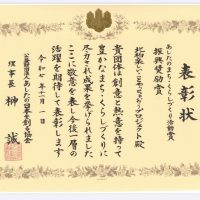 表彰状
あしたのまち・くらしづくり活動賞
振興奨励賞
プロジェクト殿
貴団体は創意と熱意を持って
豊かなまち・くらしづくりに
尽力され成果を挙げられました
ここに敬意を表し今後一層の
活躍を期待して表彰します
令和七年十一月一日
公益財団法人あしたの日本を創る協会
理事長 榊 誠